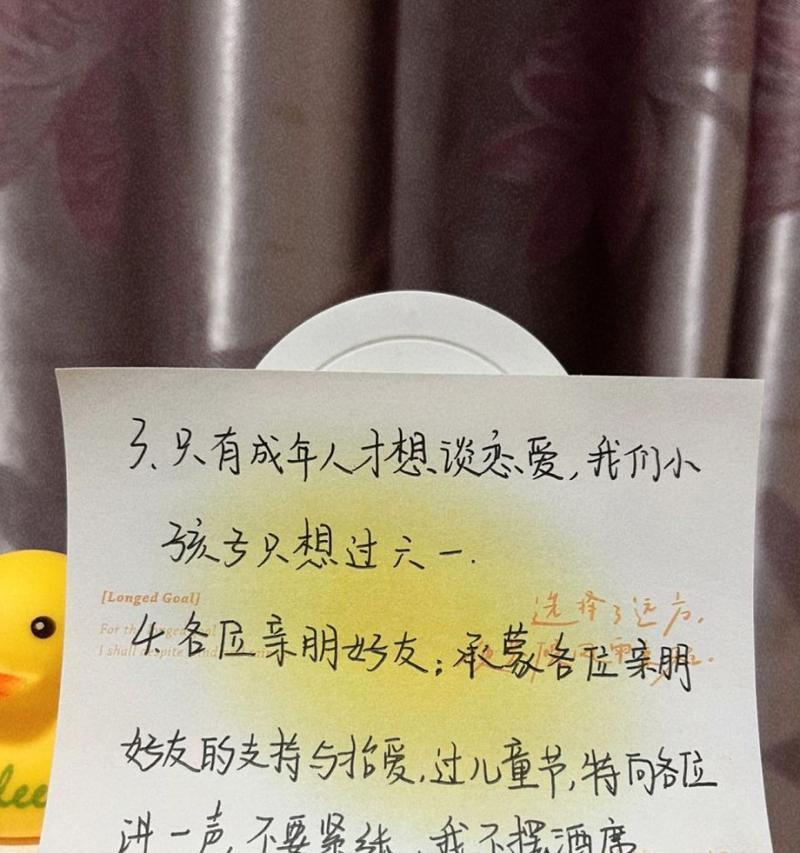 3、只有成年人才想谈恋爱,我们小
孩子只想过六一.
[Longed Goal]
选择了远方,
4.各位亲朋好友;承蒙各位亲朋
好友的支持与抬爱,过儿童节,特向各位
讲一声,不要紧张,我不摆酒席
lee